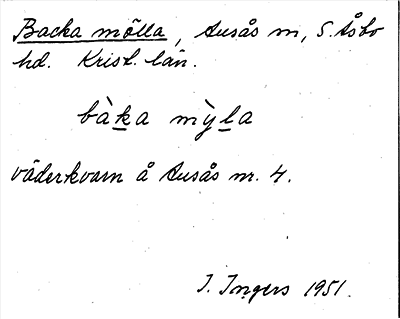 Backa mölla, Ausås sn, S. Åsbo
hd. Krist. län.
bàka mỳla
väderkvarn å Ausås nr. 4.
I. Ingers 1951.